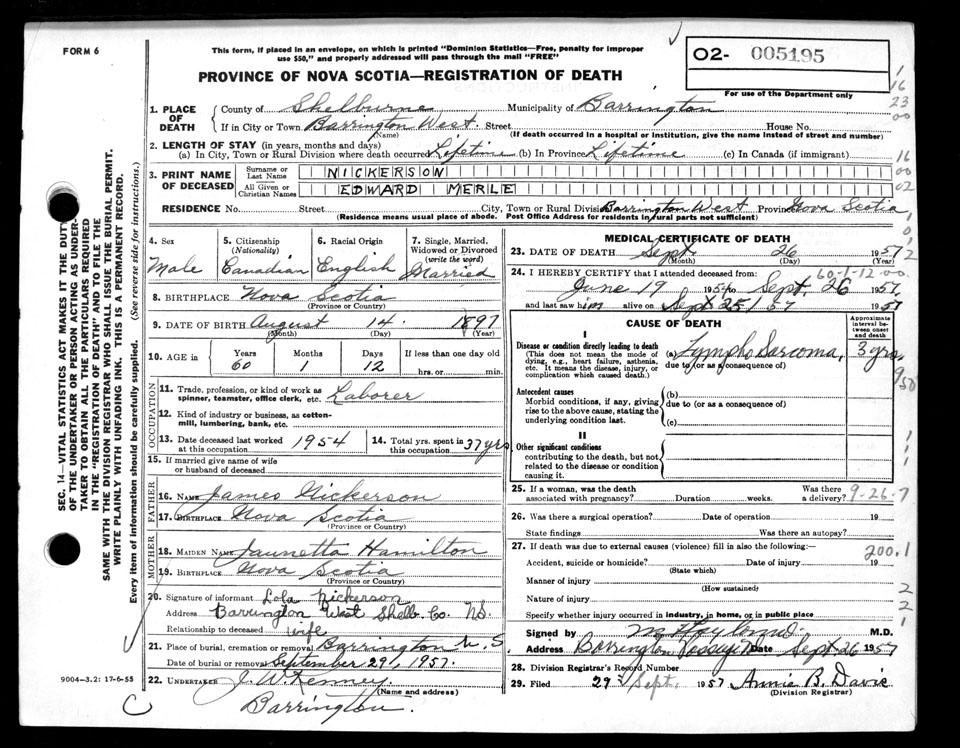 FORM 6
This form, if placed in an envelope, on which is printed "Dominion Statistics—Free, penalty for improper
use $50," and properly addressed will pass through the mail "FREE"
02- 005195
For use of the Department only
PROVINCE OF NOVA SCOTIA—REGISTRATION OF DEATH
SEC. 14—VITAL STATISTICS ACT MAKES IT THE DUTY
OF THE UNDERTAKER OR PERSON ACTING AS UNDER-
TAKER TO OBTAIN ALL THE PARTICULARS REQUIRED
IN THE "REGISTRATION OF DEATH" AND TO FILE THE
SAME WITH THE DIVISION REGISTRAR WHO SHALL ISSUE THE BURIAL PERMIT.
WRITE PLAINLY WITH UNFADING INK. THIS IS A PERMANENT RECORD.
Every item of information should be carefully supplied. (See reverse side for instructions.)
1. PLACE OF DEATH County of Shelburne Municipality of Barrington
If in City or Town Barrington West. Street House No.
(Name) (If death occurred in a hospital or institution, give the name instead of street and number)
2. LENGTH OF STAY (in years, months and days)
(a) In City, Town or Rural Division where death occurred Lifetime (b) In Province Lifetime (c) In Canada (if immigrant)
3. PRINT NAME OF DECEASED Surname or Last Name NICKERSON
All Given or Christian Names EDWARD MERLE
RESIDENCE No. Street City, Town or Rural Division Barrington West Province Nova Scotia
(Residence means usual place of abode. Post Office Address for residents in rural parts not sufficient).
4. Sex Male
5. Citizenship (Nationality) Canadian
6. Racial Origin English
7. Single, Married, Widowed or Divorced (write the word) Married
8. BIRTHPLACE Nova Scotia
(Province or Country)
9. DATE OF BIRTH August 14. 1897
(Month) (Day) (Year)
10. AGE in Years 60 Months 1 Days 12 If less than one day old
hrs. or min.
OCCUPATION
11. Trade, profession, or kind of work as spinner, teamster, office clerk, etc. Laborer
12. Kind of industry or business, as cotton-mill, lumbering, bank, etc.
13. Date deceased last worked at this occupation 1954
14. Total yrs. spent in this occupation 37 yrs
15. If married give name of wife or husband of deceased
FATHER
16. NAME James Nickerson
17. BIRTHPLACE Nova Scotia
(Province or Country)
MOTHER
18. MAIDEN NAME Jaunetta Hamilton
19. BIRTHPLACE Nova Scotia
(Province or Country)
20. Signature of informant Lola Nickerson
Address Barrington West Shelb. Co. N.S.
Relationship to deceased wife
21. Place of burial, cremation or removal Barrington N.S.
Date of burial or removal September 29, 1957.
22. UNDERTAKER J. W. Kenney
(Name and address)
Barrington.
9004—3.2: 17-6-55
MEDICAL CERTIFICATE OF DEATH
23. DATE OF DEATH Sept. 26 1957
(Month) (Day) (Year)
24. I HEREBY CERTIFY that I attended deceased from:
60-1-12-00
June 19 1954 to Sept. 26 1957
and last saw him alive on Sept 25 1957
CAUSE OF DEATH
Approximate interval between onset and death
I
Disease or condition directly leading to death
(This does not mean the mode of dying, e.g., heart failure, asthenia, etc. It means the disease, injury, or complication which caused death.)
(a) Lympho Sarcoma, 3 yrs
due to (or as a consequence of)
Antecedent causes
Morbid conditions, if any, giving rise to the above cause, stating the underlying condition last.
(b)
due to (or as a consequence of)
(c)
II
Other significant conditions
contributing to the death, but not related to the disease or condition causing it.
25. If a woman, was the death associated with pregnancy? Duration weeks. Was there a delivery?
9-26-7
26. Was there a surgical operation? Date of operation 19
State findings Was there an autopsy?
27. If death was due to external causes (violence) fill in also the following:—
200.1
Accident, suicide or homicide? Date of injury 19
(State which)
Manner of injury
(How sustained)
Nature of injury
Specify whether injury occurred in industry, in home, or in public place
Signed by M.D.
Address Barrington Passage Date Sept 26 1957
28. Division Registrar's Record Number
29. Filed 29 Sept. 1957 Annie B. Davis
(Division Registrar)